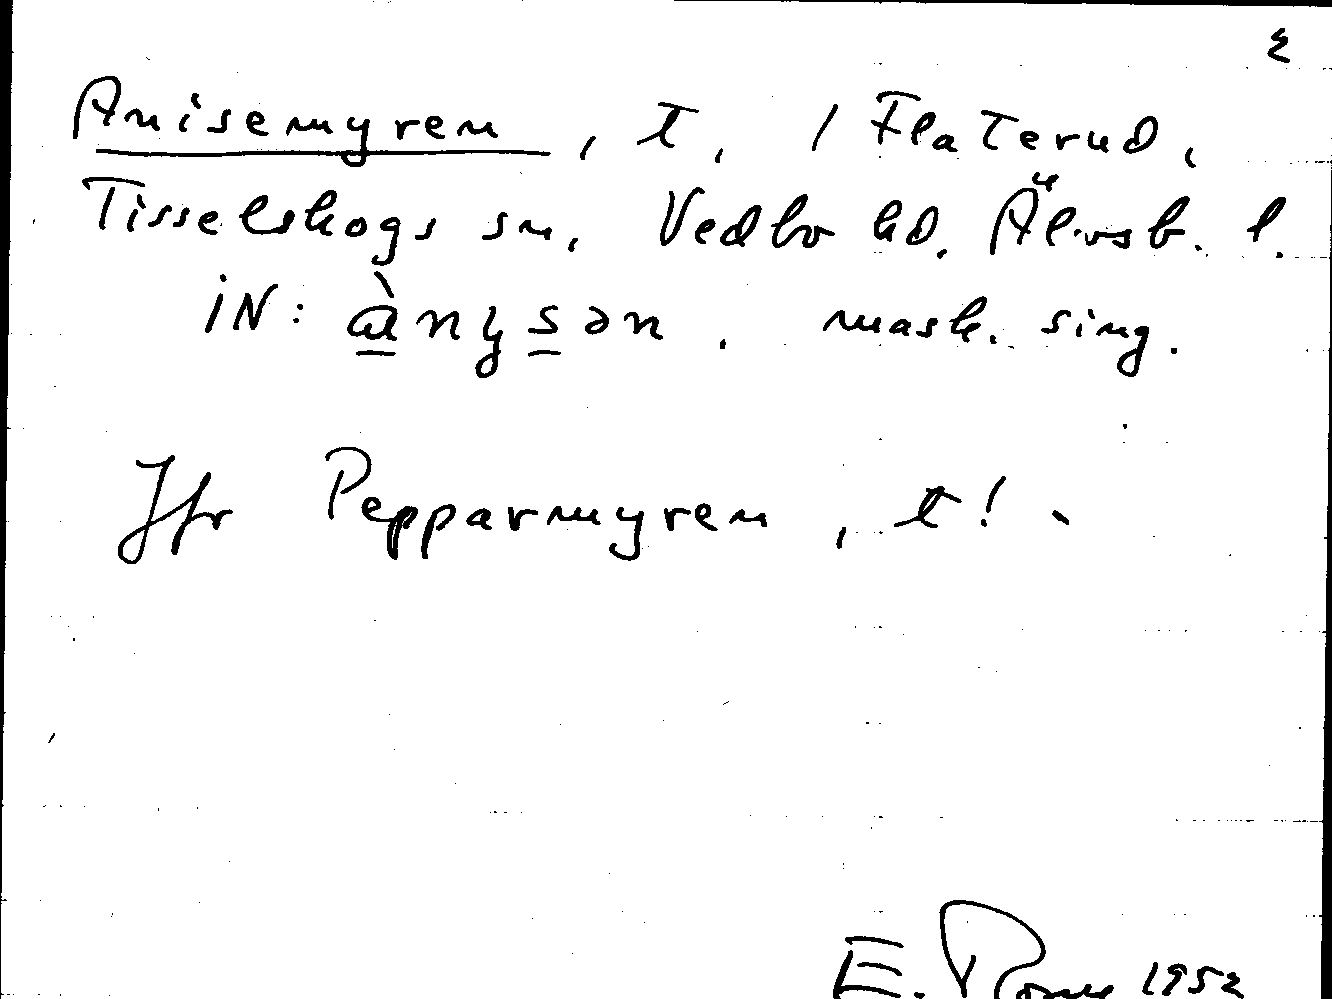 Anisemyren, t, / Flaterud,
Tisselskogs sn, Vedbo hd. Älvsb. l.
IN: ànysən. mask. sing.
Jfr Pepparmyren, t!
E. 1952